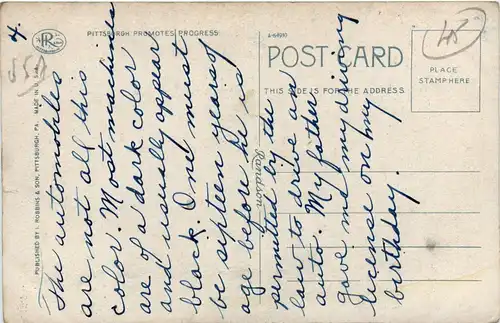 4.
PITTSBURGH PROMOTES PROGRESS
A-64910
POST CARD
THIS SIDE IS FOR THE ADDRESS
PLACE
STAMP HERE
PUBLISHED BY I. ROBBINS & SON, PITTSBURGH, PA. MADE IN U.S.A.
The automobiles
are not all this
color. Most machines
are of a dark color
and usually appear
black. One must
be sixteen years of
age before he is
permitted by the
law to drive an
auto. My father
gave me my driving
license on my
birthday.